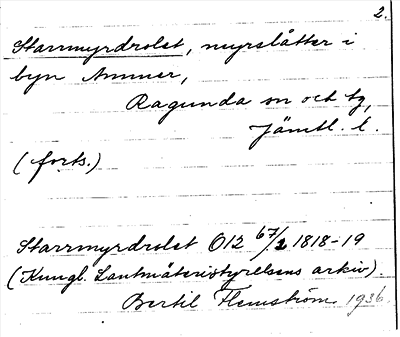 2.
Starrmyrdrolet, myrslåtter i
byn Ammer,
Ragunda sn och tg,
Jämtl. l.
(forts.)
Starrmyrdrolet O12 67/2 1818-19
(Kungl. Lantmäteristyrelsens arkiv).
Bertil Flemström 1936